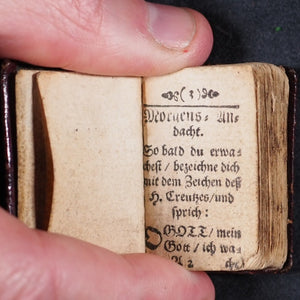 ( 3 )
Morgens-An-
dacht.
So bald du erwa-
chest / bezeichne dich
mit dem Zeichen deß
H. Creutzes/und
sprich:
O GOTT/mein
Gott / ich wa-
A 2 che